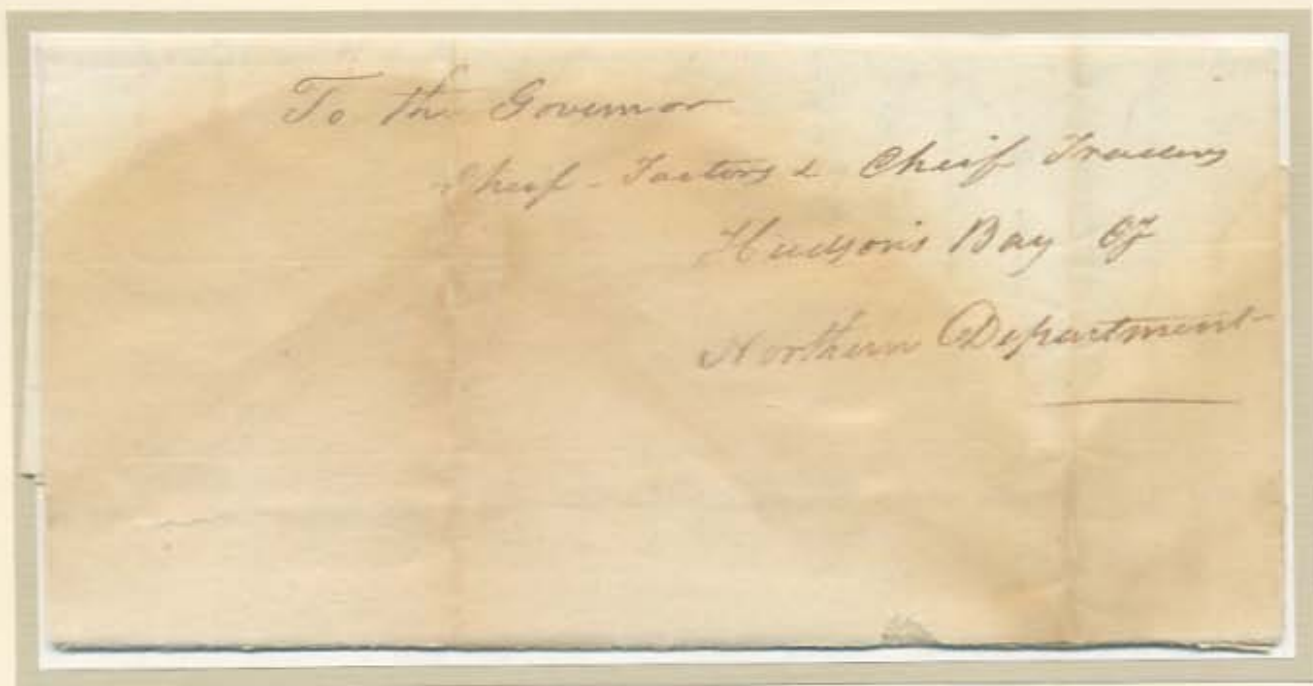 To the Governor
Cheif Factors & Cheif Traders
Hudson's Bay Cy
Northern Department